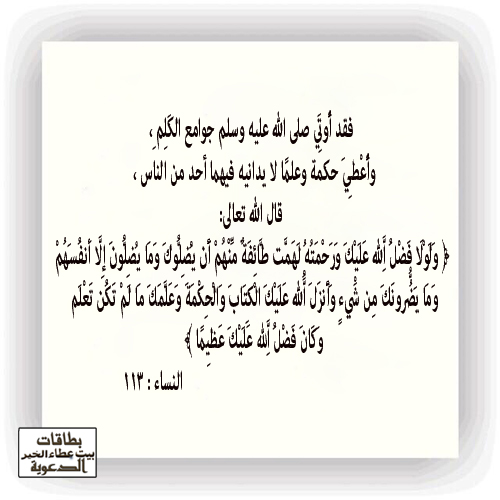 فقد أُوتِيَ صلى الله عليه وسلم جوامع الكَلِمِ ،
وأُعْطِيَ حكمة وعلمًا لا يدانيه فيهما أحد من الناس ،
قال الله تعالى:
﴿ وَلَوْلَا فَضْلُ اللَّهِ عَلَيْكَ وَرَحْمَتُهُ لَهَمَّت طَّائِفَةٌ مِّنْهُمْ أَن يُضِلُّوكَ وَمَا يُضِلُّونَ إِلَّا أَنفُسَهُمْ
وَمَا يَضُرُّونَكَ مِن شَيْءٍ وَأَنزَلَ اللَّهُ عَلَيْكَ الْكِتَابَ وَالْحِكْمَةَ وَعَلَّمَكَ مَا لَمْ تَكُن تَعْلَم
وَكَانَ فَضْلُ اللَّهِ عَلَيْكَ عَظِيمًا ﴾
النساء : ١١٣
بطاقات
بيت عطاء الخير
الدعوية